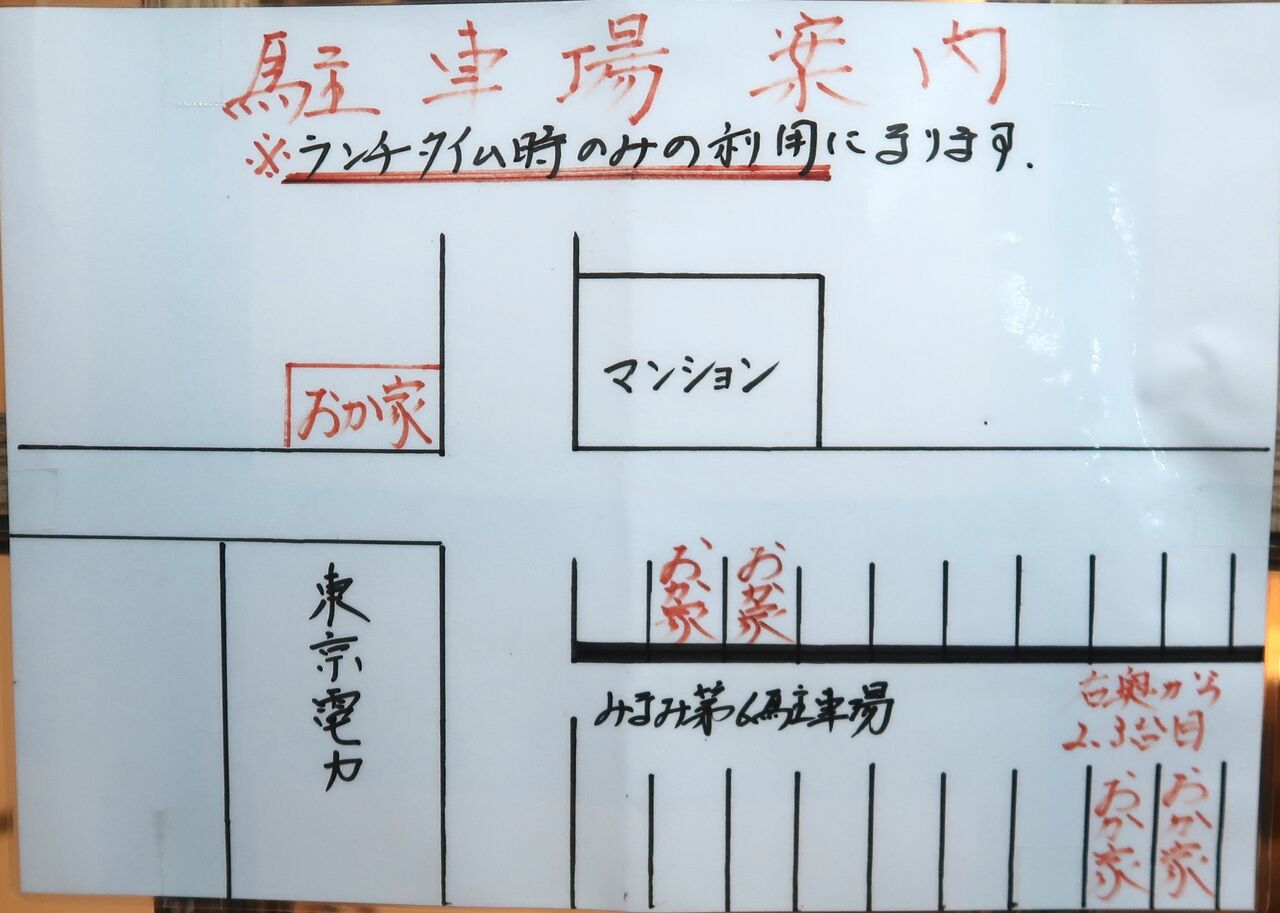 駐車場案内
※ランチタイム時のみの利用になります.
おか家
マンション
東京電力
おか家
おか家
みなみ第6駐車場
右奥から
2、3台目
おか家
おか家